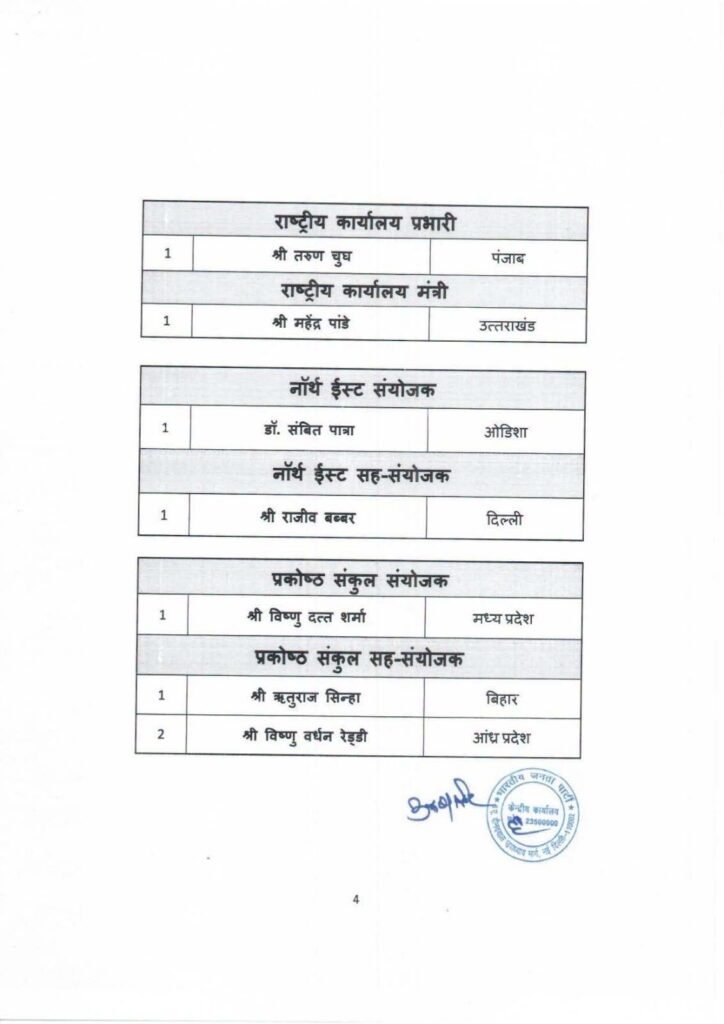 राष्ट्रीय कार्यालय प्रभारी
1 श्री तरुण चुघ पंजाब
राष्ट्रीय कार्यालय मंत्री
1 श्री महेंद्र पांडे उत्तराखंड
नॉर्थ ईस्ट संयोजक
1 डॉ. संबित पात्रा ओडिशा
नॉर्थ ईस्ट सह-संयोजक
1 श्री राजीव बब्बर दिल्ली
प्रकोष्ठ संकुल संयोजक
1 श्री विष्णु दत्त शर्मा मध्य प्रदेश
प्रकोष्ठ संकुल सह-संयोजक
1 श्री ऋतुराज सिन्हा बिहार
2 श्री विष्णु वर्धन रेड्डी आंध्र प्रदेश
भारतीय जनता पार्टी
केन्द्रीय कार्यालय
23500000
मार्ग, नई दिल्ली-110002
4